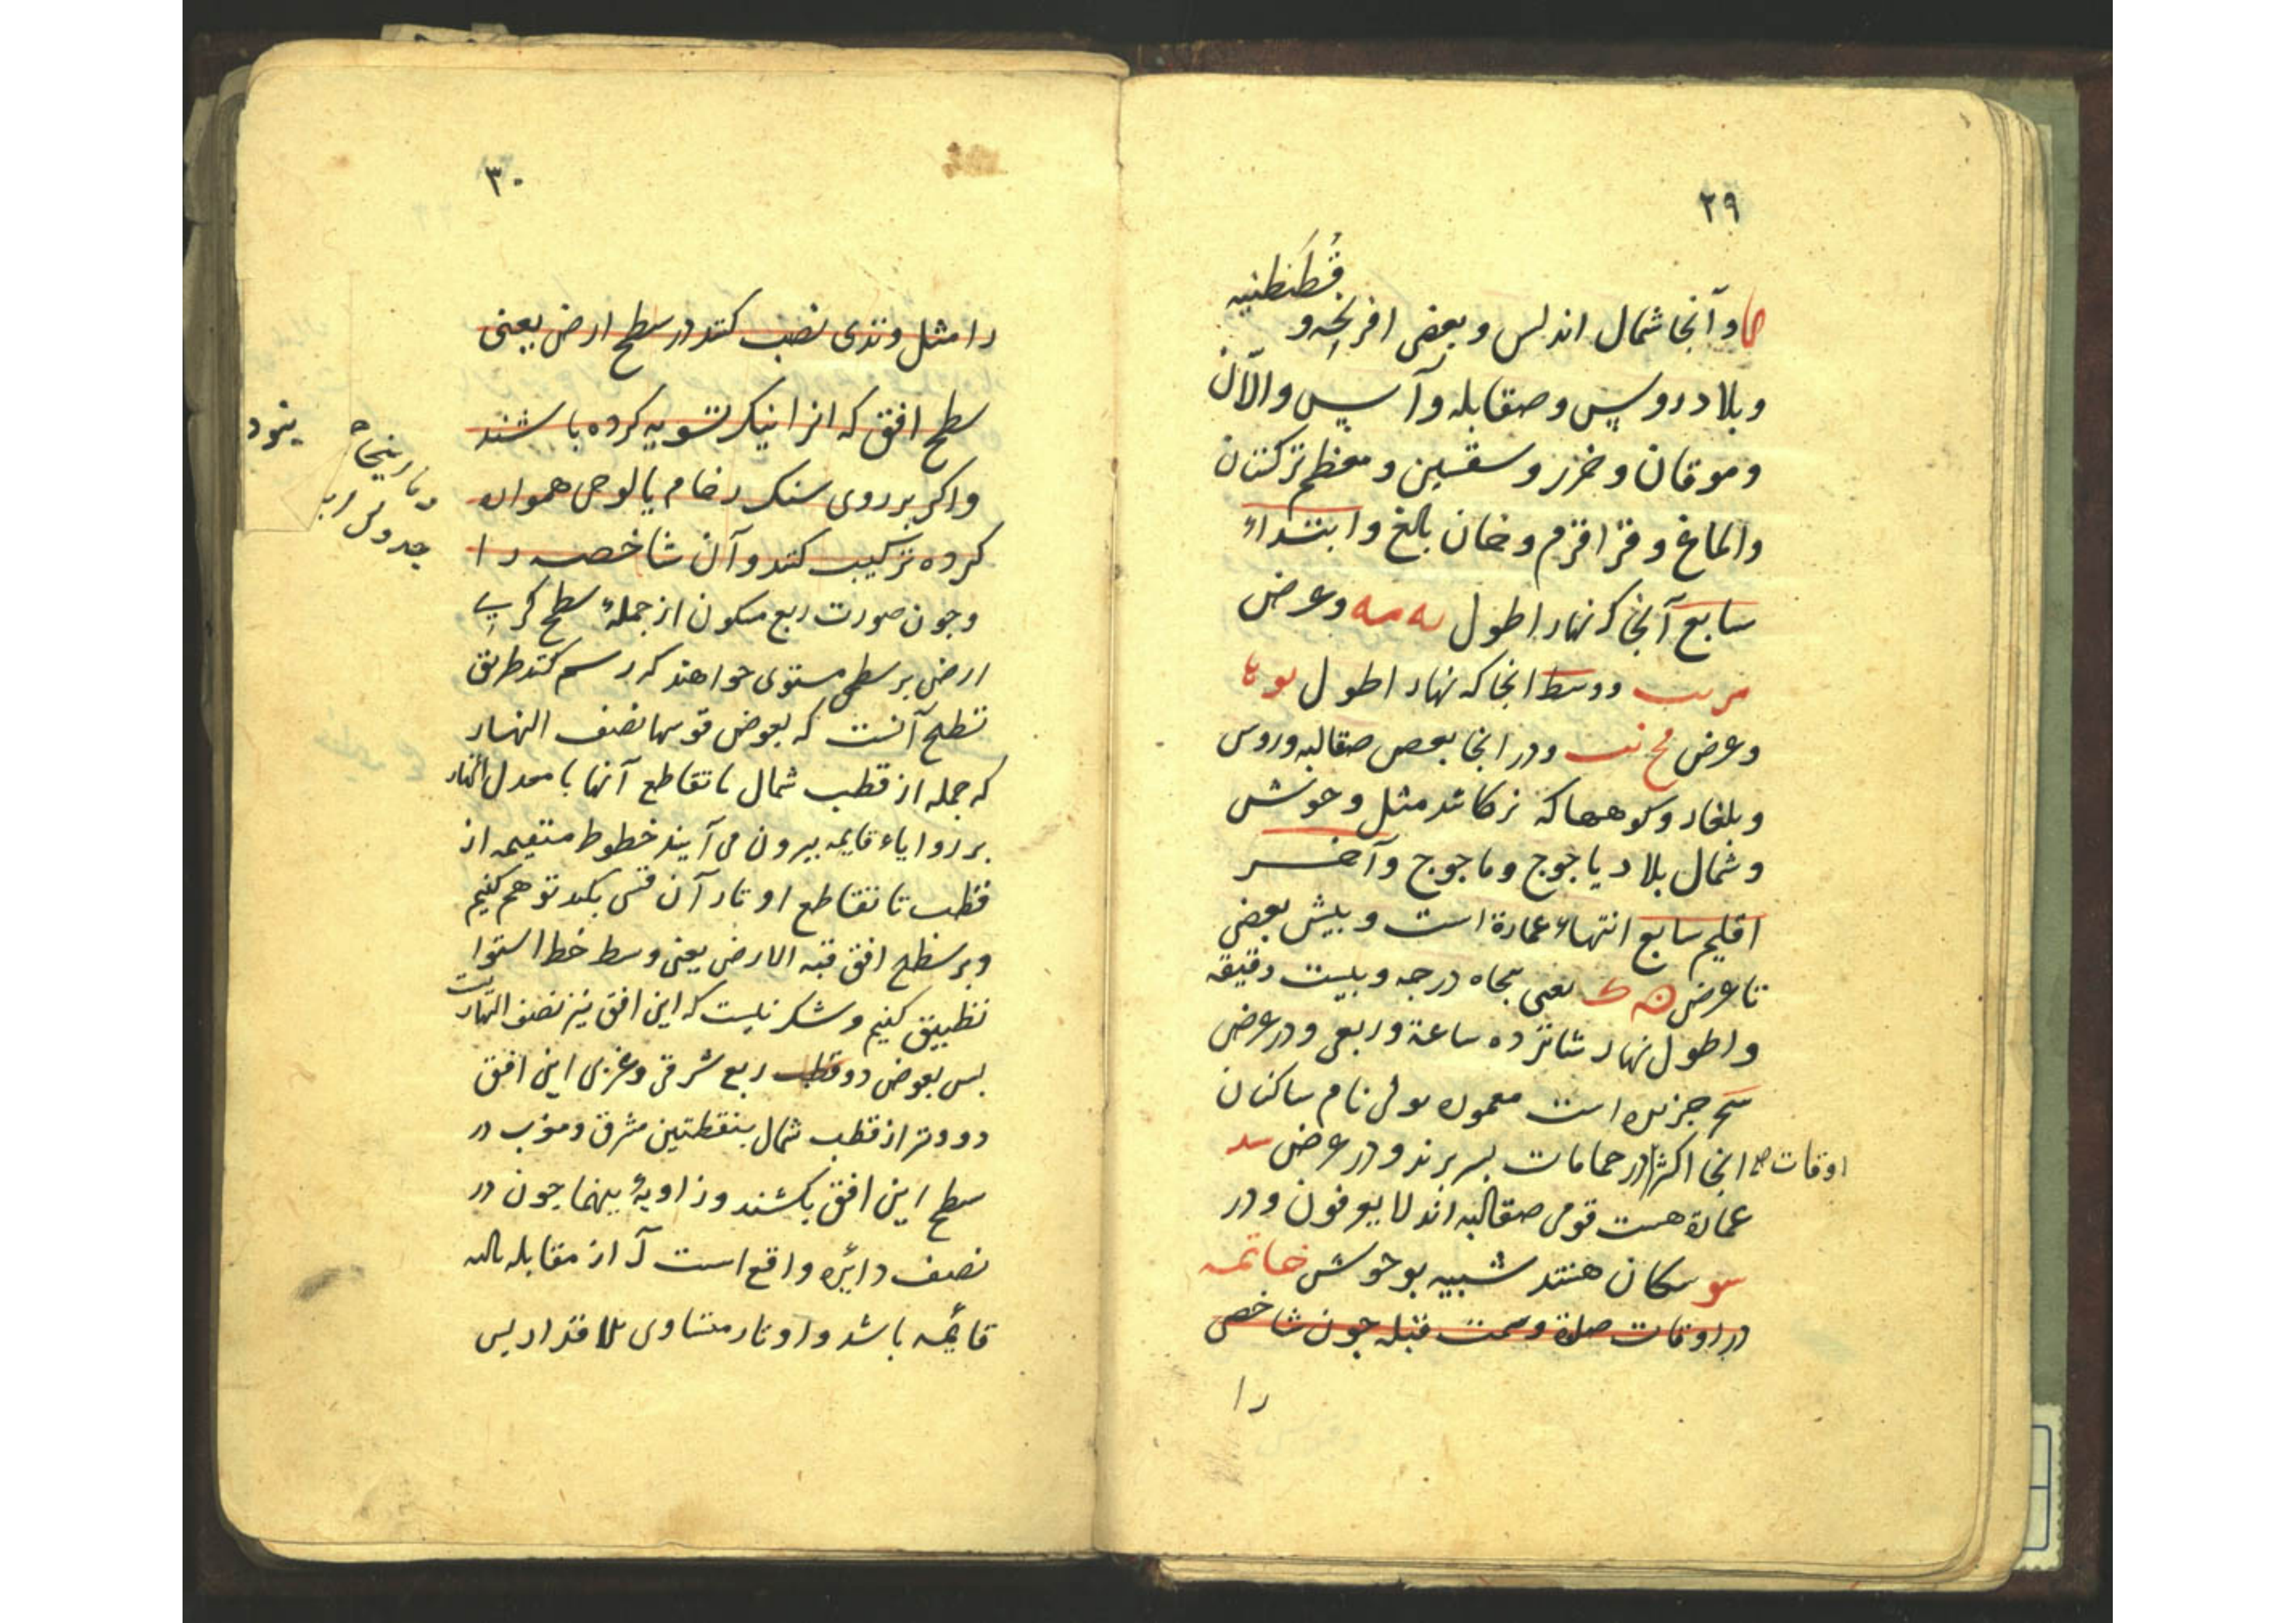 ۲۹
قُطَنطنیه
و آنجا شمال اندلس و بعضی افرنجه و
و بلاد روس و صقابله و آس و الآن
و موقان و خزر و سقسین و معظم ترکستان
والماغ و قراقرم و خان بالغ و ابتداء
سابع آنجا که نهار اطول یه مه و عرض
مر یب و وسط انجا که نهار اطول یو ها
و عرض مح نب و در انجا بعض صقالبه و روس
و بلغار و کوهها که ترکانند مثل وحوش
و شمال بلاد یاجوج و ماجوج و آخر
اقلیم سابع انتهاء عمارة است و بیش بعضی
تا عرض ن ک یعنی پنجاه درجه و بیست دقیقه
و اطول نهار شانزده ساعة و ربعی و در عرض
سح جزیره است معموره تولی نام ساکنان
انجا اکثر در حمامات بسر برند و در عرض سد
اوقات صح
عمارة هست قومی صقالبه اند لا یعرفون و در
سو سکان هستند شبیه بوحوش خاتمه
در اوقات صلوة و سمت قبله چون شاخصی
را
۳۰
را مثل وتدی نصب کنند در سطح ارض یعنی
سطح افق که انرا نیک تسویه کرده باشند
و اکر بر روی سنک رخام یا لوحی هموار
کرده ترکیب کنند و آن شاخصه را
و جون صورت ربع مسکون از جملهٔ سطح کریّ
ارض بر سطحی مستوی خواهند که رسم کنند طریق
تسطیح آنست که بعوض قوسها نصف النهار
که جمله از قطب شمال تا تقاطع آنها با معدل النهار
بر زوایاء قایمه بیرون می آیند خطوط مستقیمه از
قطب تا تقاطع اوتار آن قسی بکدیکر توهم کنیم
و بر سطح افق قبة الارض یعنی وسط خط استوا
تطبیق کنیم و شک نیست که این افق نیز نصف النهار
بس بعوض دو قطب ربع شرقی و غربی این افق
دو وتر از قطب شمال بنقطتین مشرق و مغرب در
سطح این افق بکشند و زاویهٔ بینهما چون در
نصف دائره واقع است از مقابله
قائمه باشد و اوتار متساوی بس
تا رینجا
جدولی